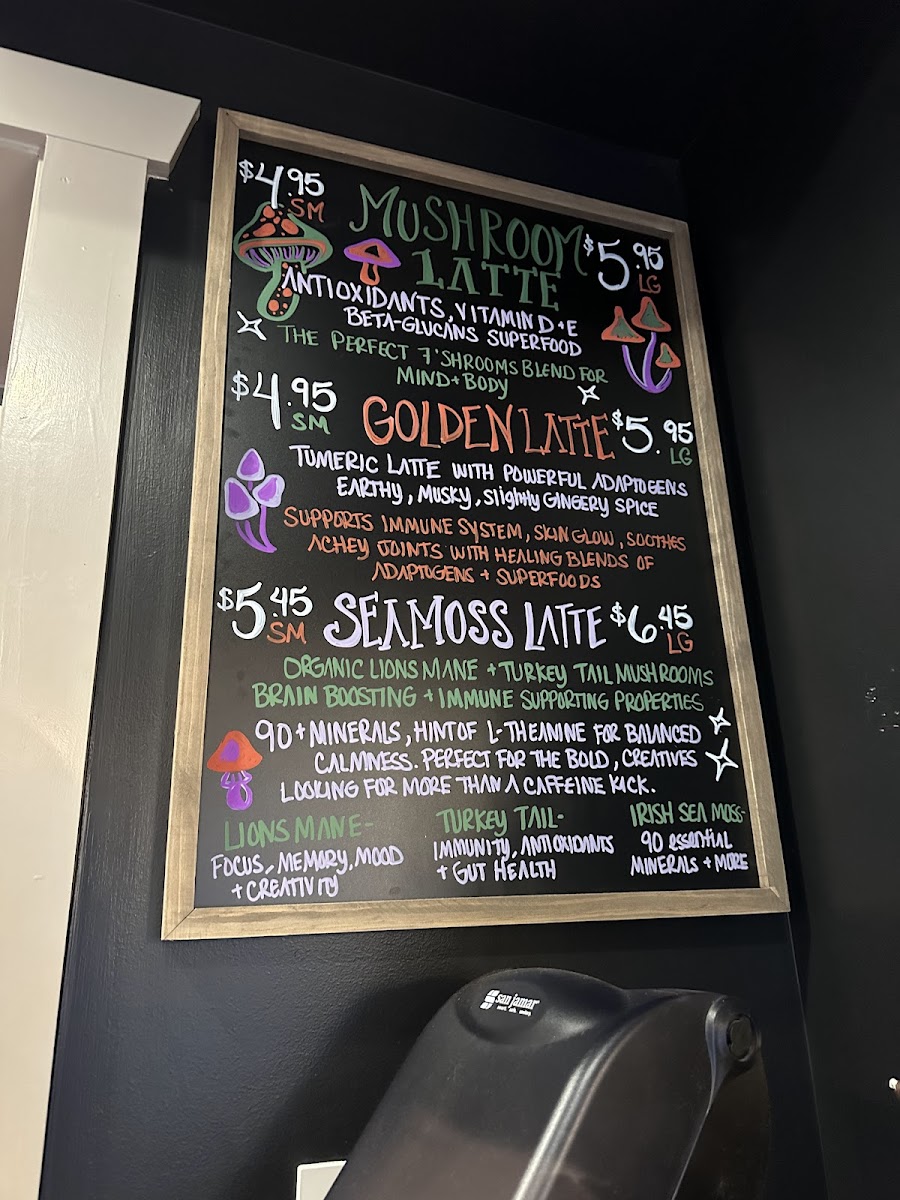 $4.95 SM
MUSHROOM
LATTE
$5.95 LG
ANTIOXIDANTS, VITAMIN D+E
BETA-GLUCANS SUPERFOOD
THE PERFECT 7 'SHROOMS BLEND FOR
MIND+BODY
$4.95 SM
GOLDEN LATTE
$5.95 LG
TUMERIC LATTE WITH POWERFUL ADAPTOGENS
EARTHY, MUSKY, Slightly GINGERY SPICE
SUPPORTS IMMUNE SYSTEM, SKIN GLOW, SOOTHES
ACHEY JOINTS WITH HEALING BLENDS OF
ADAPTOGENS + SUPERFOODS
$5.45 SM
SEAMOSS LATTE
$6.45 LG
ORGANIC LIONS MANE + TURKEY TAIL MUSHROOMS
BRAIN BOOSTING + IMMUNE SUPPORTING PROPERTIES
90+ MINERALS, HINT OF L-THEANINE FOR BALANCED
CALMNESS. PERFECT FOR THE BOLD, CREATIVES
LOOKING FOR MORE THAN A CAFFEINE KICK.
LIONS MANE-
FOCUS, MEMORY, MOOD
+ CREATIVITY
TURKEY TAIL-
IMMUNITY, ANTIOXIDANTS
+ GUT HEALTH
IRISH SEA MOSS-
90 essential
MINERALS + MORE
san jamar